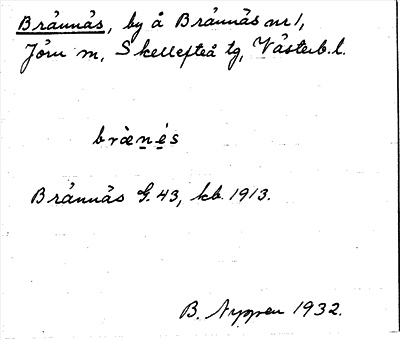 Brännäs, by å Brännäs nr 1,
Jörn sn, Skellefteå tg, Västerb. l.
brɑ̀nę́s
Brännäs G. 43, kb. 1913.
B. Nyman 1932.